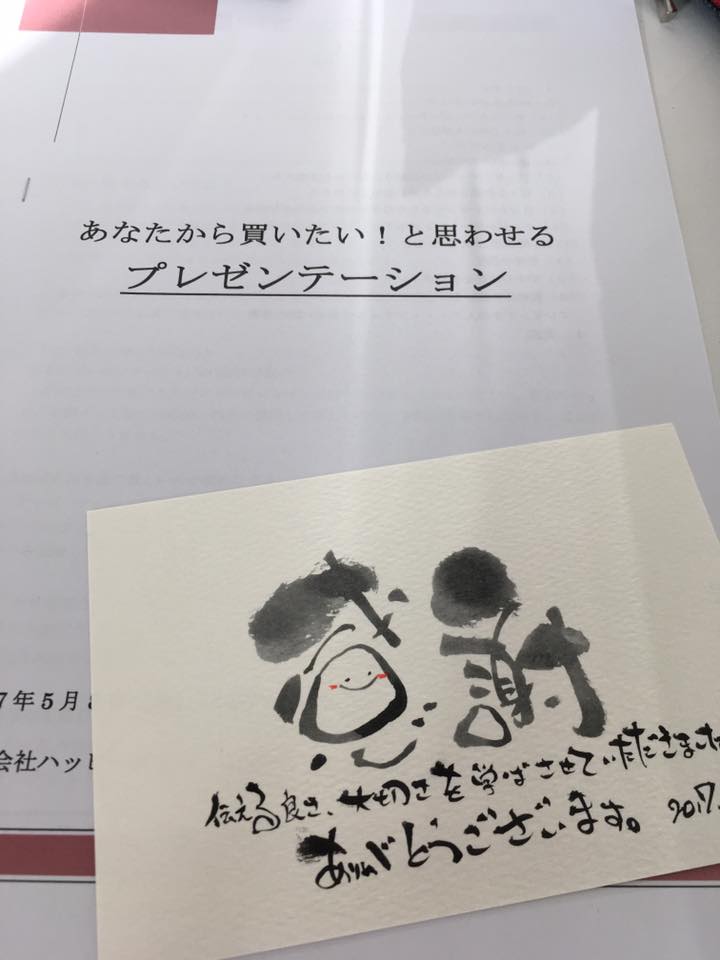 あなたから買いたい！と思わせる
プレゼンテーション
7年5月
会社ハッピ
感謝
伝える良さ、大切さを学ばさせていただきました
ありがとうございます。 2017.